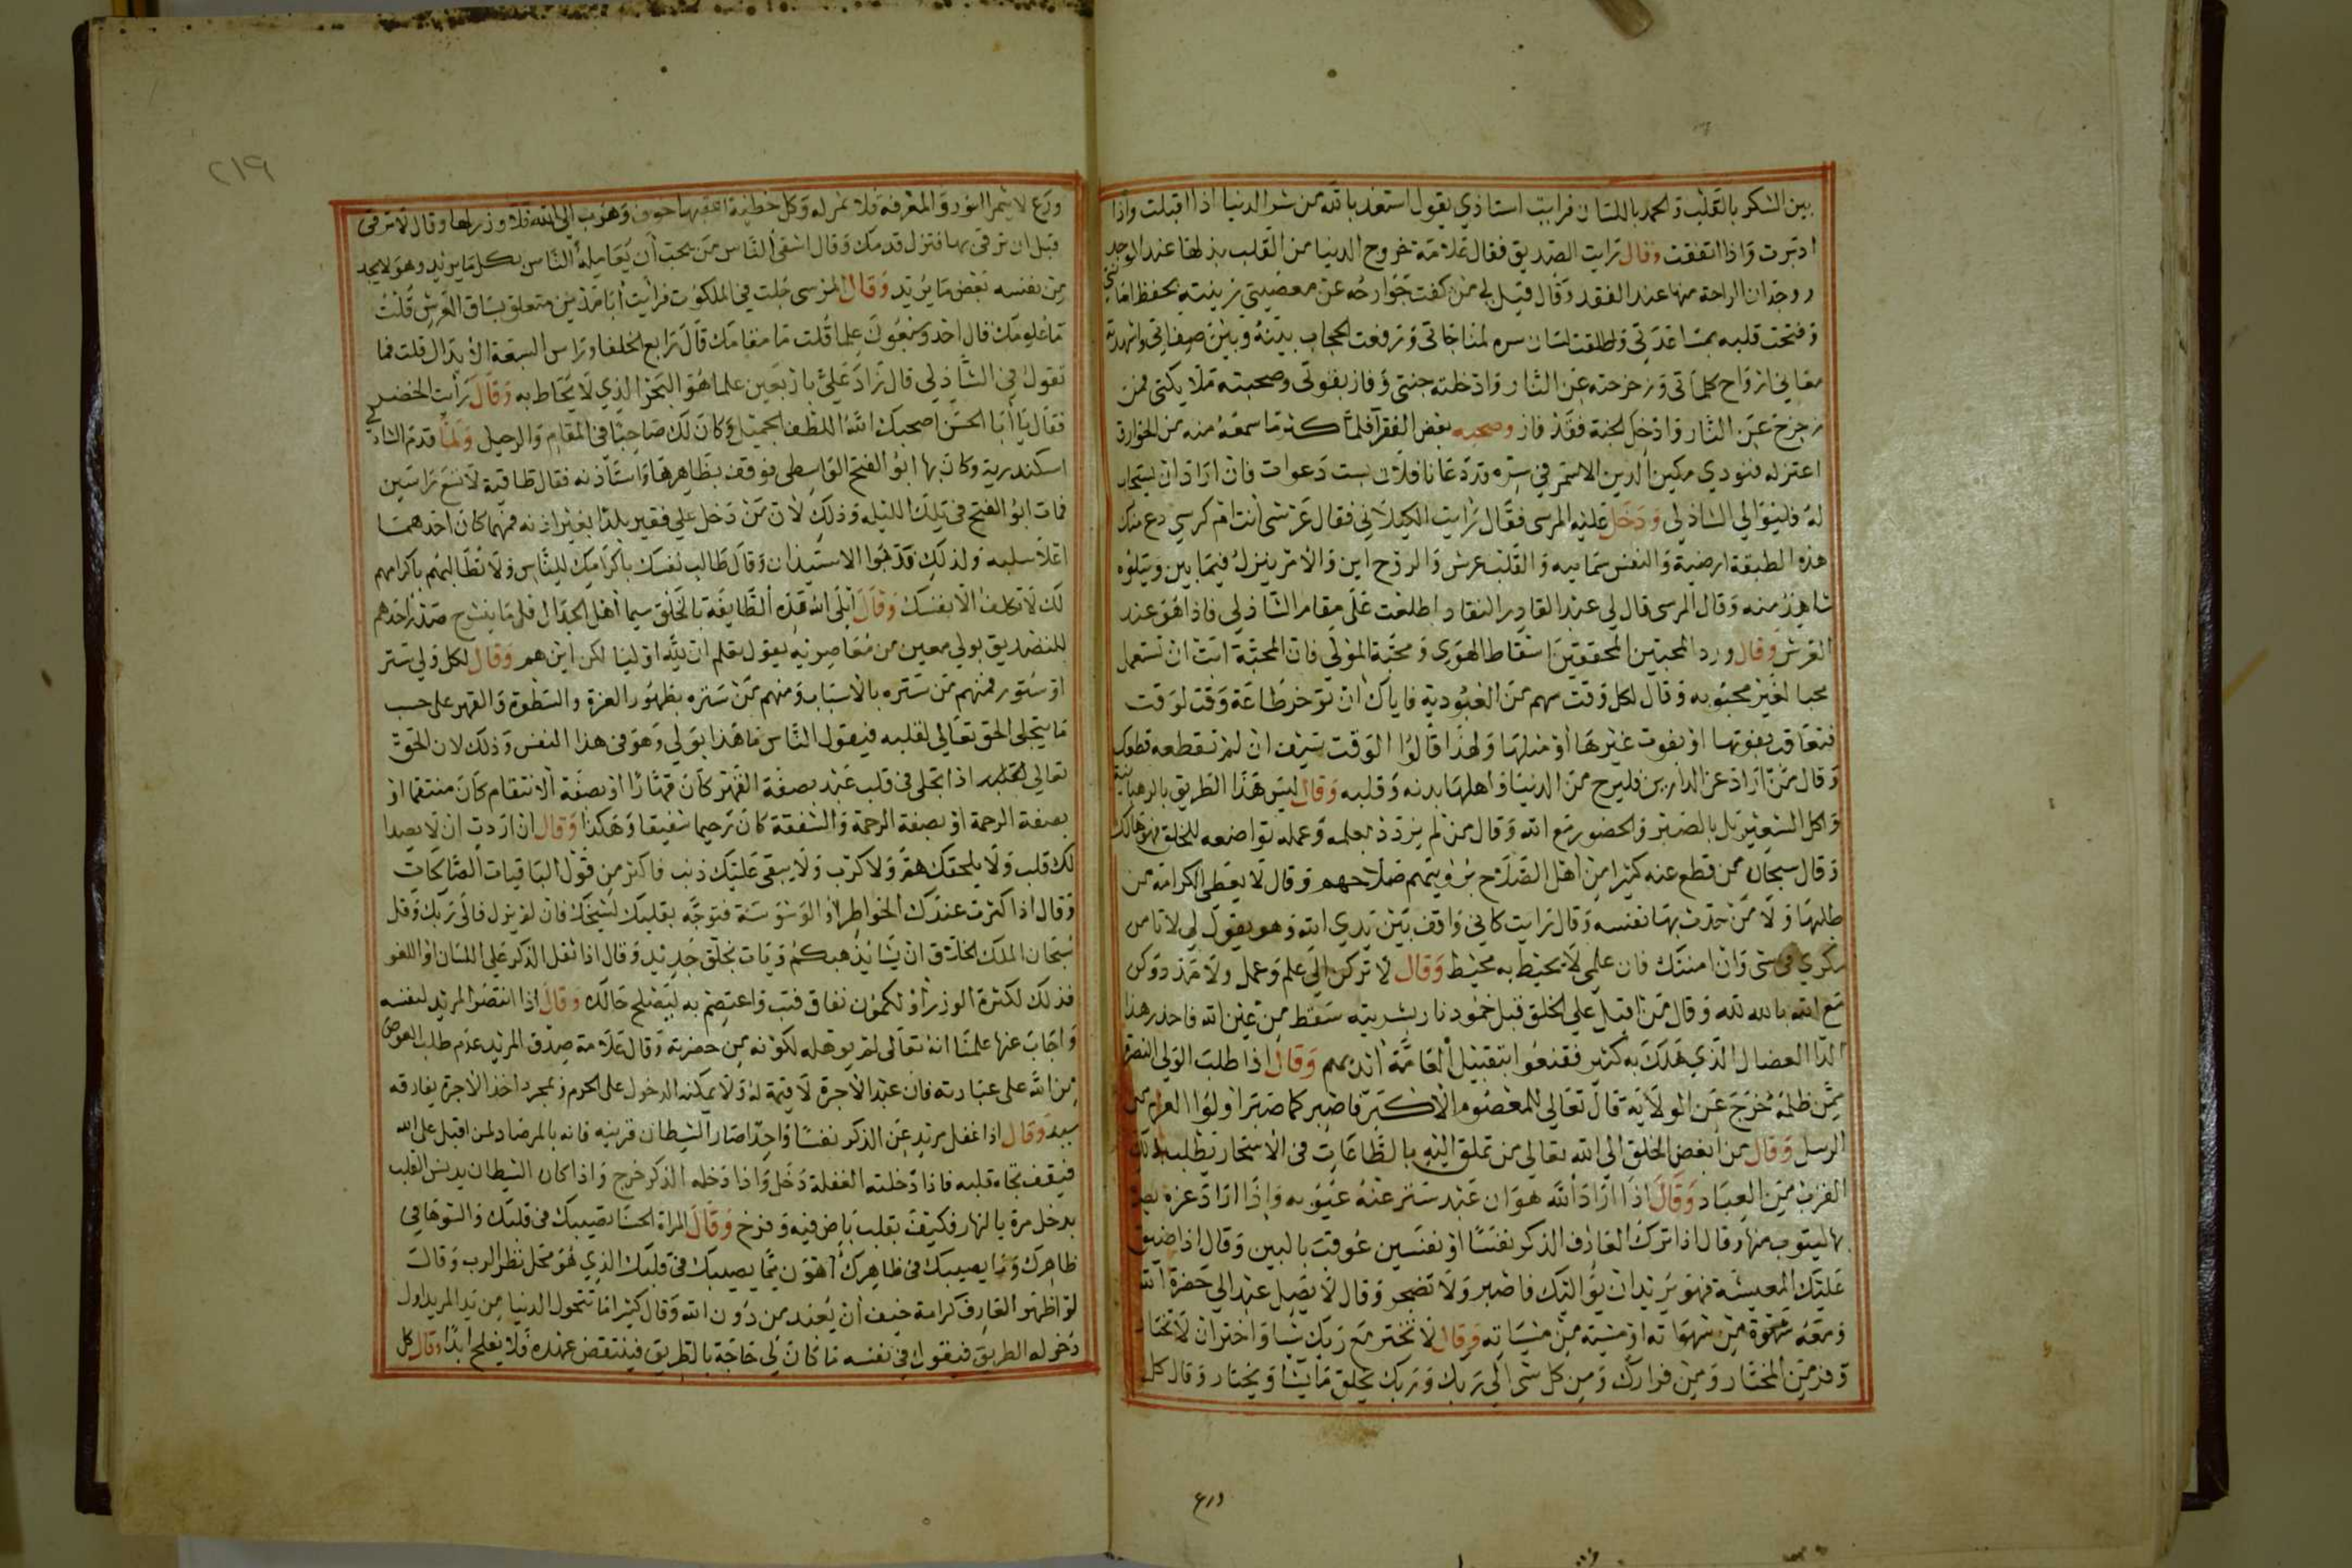 بين الشكر بالقلب والحمد باللسان فرايت استاذي يقول استعذ بالله من شر الدنيا اذا اقبلت واذا
ادبرت واذا انفقت وقال رايت الصديق فقال علامة خروج الدنيا من القلب بذلها عند الوجد
ووجدان الراحة منها عند الفقد وقال قيل لي من كفت جوارحه عن معصيتي زينته بحفظ امانتي
وفتحت قلبه بمشاهدتي واطلقت لسان سره لمناجاتي ورفعت الحجاب بينه وبين صفاتي واشهدته
معاني ارواح كلماتي وزحزحته عن النار وادخلته جنتي وفاز بقربي وصحبته ملائكتي فمن
زحزح عن النار وادخل الجنة فقد فاز وصحبه بعض الفقرا فلما كثر ما سمعه منه من الخوارق
اعتزله فنودي مكين الدين الاسمر في سره قد دعانا فلان بست دعوات فان اراد ان يستجاب
له فليوالي الشاذلي ودخل عليه المرسى فقال رايت الكيلاني فقال عرشي انت ام كرسي دع عنك
هذه الطبقة ارضية والنفس سمايية والقلب عرش والروح اين والامر ينزل فيما بين ويتلوه
شاهد منه وقال المرسى قال لي عبد القادر النقاد اطلعت على مقام الشاذلي فاذا هو عند
العرش وقال ورد المحبين المحققين اسقاط الهوى ومحبة المولى فان المحبة ابت ان تستعمل
محبا لغير محبوبه وقال لكل وقت سهم من العبودية فاياك ان توخر طاعة وقت لوقت
فتعاقب بفوتها او بفوت غيرها او مثلها ولهذا قالوا الوقت سيف ان لم تقطعه قطعك
وقال من اراد عز الدارين فليرح من الدنيا واهلها بدنه وقلبه وقال ليس هذا الطريق بالرهبانية
واكل الشعير بل بالصبر والحضور مع الله وقال من لم يزدد بعلمه وعمله تواضعه للخلق فهو هالك
وقال سبحان من قطع عنه كثيرا من اهل الصلاح برؤيتهم صلاحهم وقال لا يعطى الكرامة من
طلبها ولا من حدث بها نفسه وقال رايت كاني واقف بين يدي الله وهو يقول لي لا تامن
مكري في شي وان امنتك فان علمي لا يحيط به محيط وقال لا تركن الى علم وعمل ولا مدد وكن
مع الله بالله لله وقال من اقبل على الخلق قبل خمود نار بشريته سقط من عين الله فاحذر هذا
الدا العضال الذي هلك به كثير فقنعوا بتقبيل العامة ايديهم وقال اذا طلب الولي النصرة
ممن ظلمه خرج عن الولاية قال تعالى للمعصوم الاكبر فاصبر كما صبر اولوا العزم من
الرسل وقال من ابغض الخلق الى الله تعالى من تملق اليه بالطاعات في الاسحار يطلب بذلك
القرب من العباد وقال اذا اراد الله هوان عبد ستر عنه عيوبه واذا اراد عزه بصره
بها ليتوب منها وقال اذا ترك العارف الذكر نفسا او نفسين عوقب بالبين وقال اذا ضيق
عليك المعيشة فهو يريد ان يواليك فاصبر ولا تضجر وقال لا يصل عبد الى حضرة الله
ومعه شهوة من شهواته او مشية من مشياته وقال لا تختر مع ربك شيا واختر ان لا تختار
وفر من المختار ومن فرارك ومن كل شي الى ربك وربك يخلق ما يشا ويختار وقال كل
ورع
٢١٩
ورع لا يثمر النور والمعرفة فلا ثمر له وكل خطية اعقبها خوف وهرب الى الله فلا وزر لها وقال لا ترقى
قبل ان ترقى بها فتزل قدمك وقال اشقى الناس من يحب ان يعامله الناس بكل ما يريد وهو لا يجد
من نفسه بعض ما يريد وقال المرسى جلت في الملكوت فرايت ابا مدين متعلق بساق العرش قلت
ما علومك قال احد وسبعون علما قلت ما مقامك قال رابع الخلفا وراس السبعة الابدال قلت فما
تقول في الشاذلي قال زاد علي باربعين علما هو البحر الذي لا يحاط به وقال رايت الخضر
فقال يا ابا الحسن اصحبك الله اللطف الجميل وكان لك صاحبا في المقام والرحيل ولما قدم الشاذلي
اسكندرية وكان بها ابو الفتح الواسطي فوقف بظاهرها واستاذنه فقال طاقية لا تسع راسين
فمات ابو الفتح في تلك الليله وذلك لان من دخل على فقير بلدا بغير اذنه فمهما كان احدهما
اعلا سلبه ولذلك ندبوا الاستيذان وقال طالب نفسك باكرامك للناس ولا تطالبهم باكرامهم
لك لا تكلف الا نفسك وقال ابتلى الله هذه الطايفة بالخلق سيما اهل الجدال فقل ما ينشرح صدر احدهم
للتصديق بولي معين من معاصريه يقول نعلم ان لله اوليا لكن اين هم وقال لكل ولي ستر
او ستور فمنهم من ستره بالاسباب ومنهم من ستره بظهور العزة والسطوة والقهر على حسب
ما يتجلى الحق تعالى لقلبه فيقول الناس ما هذا بولي وهو في هذا النفس وذلك لان الحق
تعالى اذا تجلى في قلب عبد بصفة القهر كان قهارا او بصفة الانتقام كان منتقما او
بصفة الرحمة او بصفة الرحمة والشفقة كان رحيما شفيقا وهكذا وقال ان اردت ان لا يصدا
لك قلب ولا يلحقك هم ولا كرب ولا يبقى عليك ذنب فاكثر من قول الباقيات الصالحات
وقال اذا كثرت عندك الخواطر او الوسوسة فتوجه بقلبك لشيخك فان لم يزل فالى ربك وقل
سبحان الملك الخلاق ان يشا يذهبكم ويات بخلق جديد وقال اذا ثقل الذكر على اللسان او اللغو
فذلك لكثرة الوزر او لكمون نفاق فتب واعتصم به ليصلح حالك وقال اذا انتصر المريد لنفسه
واجاب عنها علمنا انه تعالى لم يوهله لكونه من حضرته وقال علامة صدق المريد عدم طلب العوض
من الله على عبادته فان عبد الاجرة لا قيمة له ولا يمكنه الدخول على الحرم وبمجرد اخذ الاجرة يفارقه
سيده وقال اذا غفل مريد عن الذكر نفسا واحدا صار الشيطان قرينه فانه بالمرصاد لمن اقبل على الله
فيقف تجاه قلبه فاذا دخلته الغفلة دخل واذا دخله الذكر خرج واذا كان الشيطان يدنس القلب
بدخل مرة بالنهار فكيف بقلب باض فيه وفرخ وقال المراة الحسنا تصيبك في قلبك والشوها في
ظاهرك وما يصيبك في ظاهرك اهون مما يصيبك في قلبك الذي هو محل نظر الرب وقال
لو اظهر العارف كرامة خيف ان يعبد من دون الله وقال كثيرا ما تتحول الدنيا من يد المريد اول
دخوله الطريق فيقول في نفسه ما كان لي حاجة بالطريق فينتقض عهده فلا يفلح ابدا وقال كل